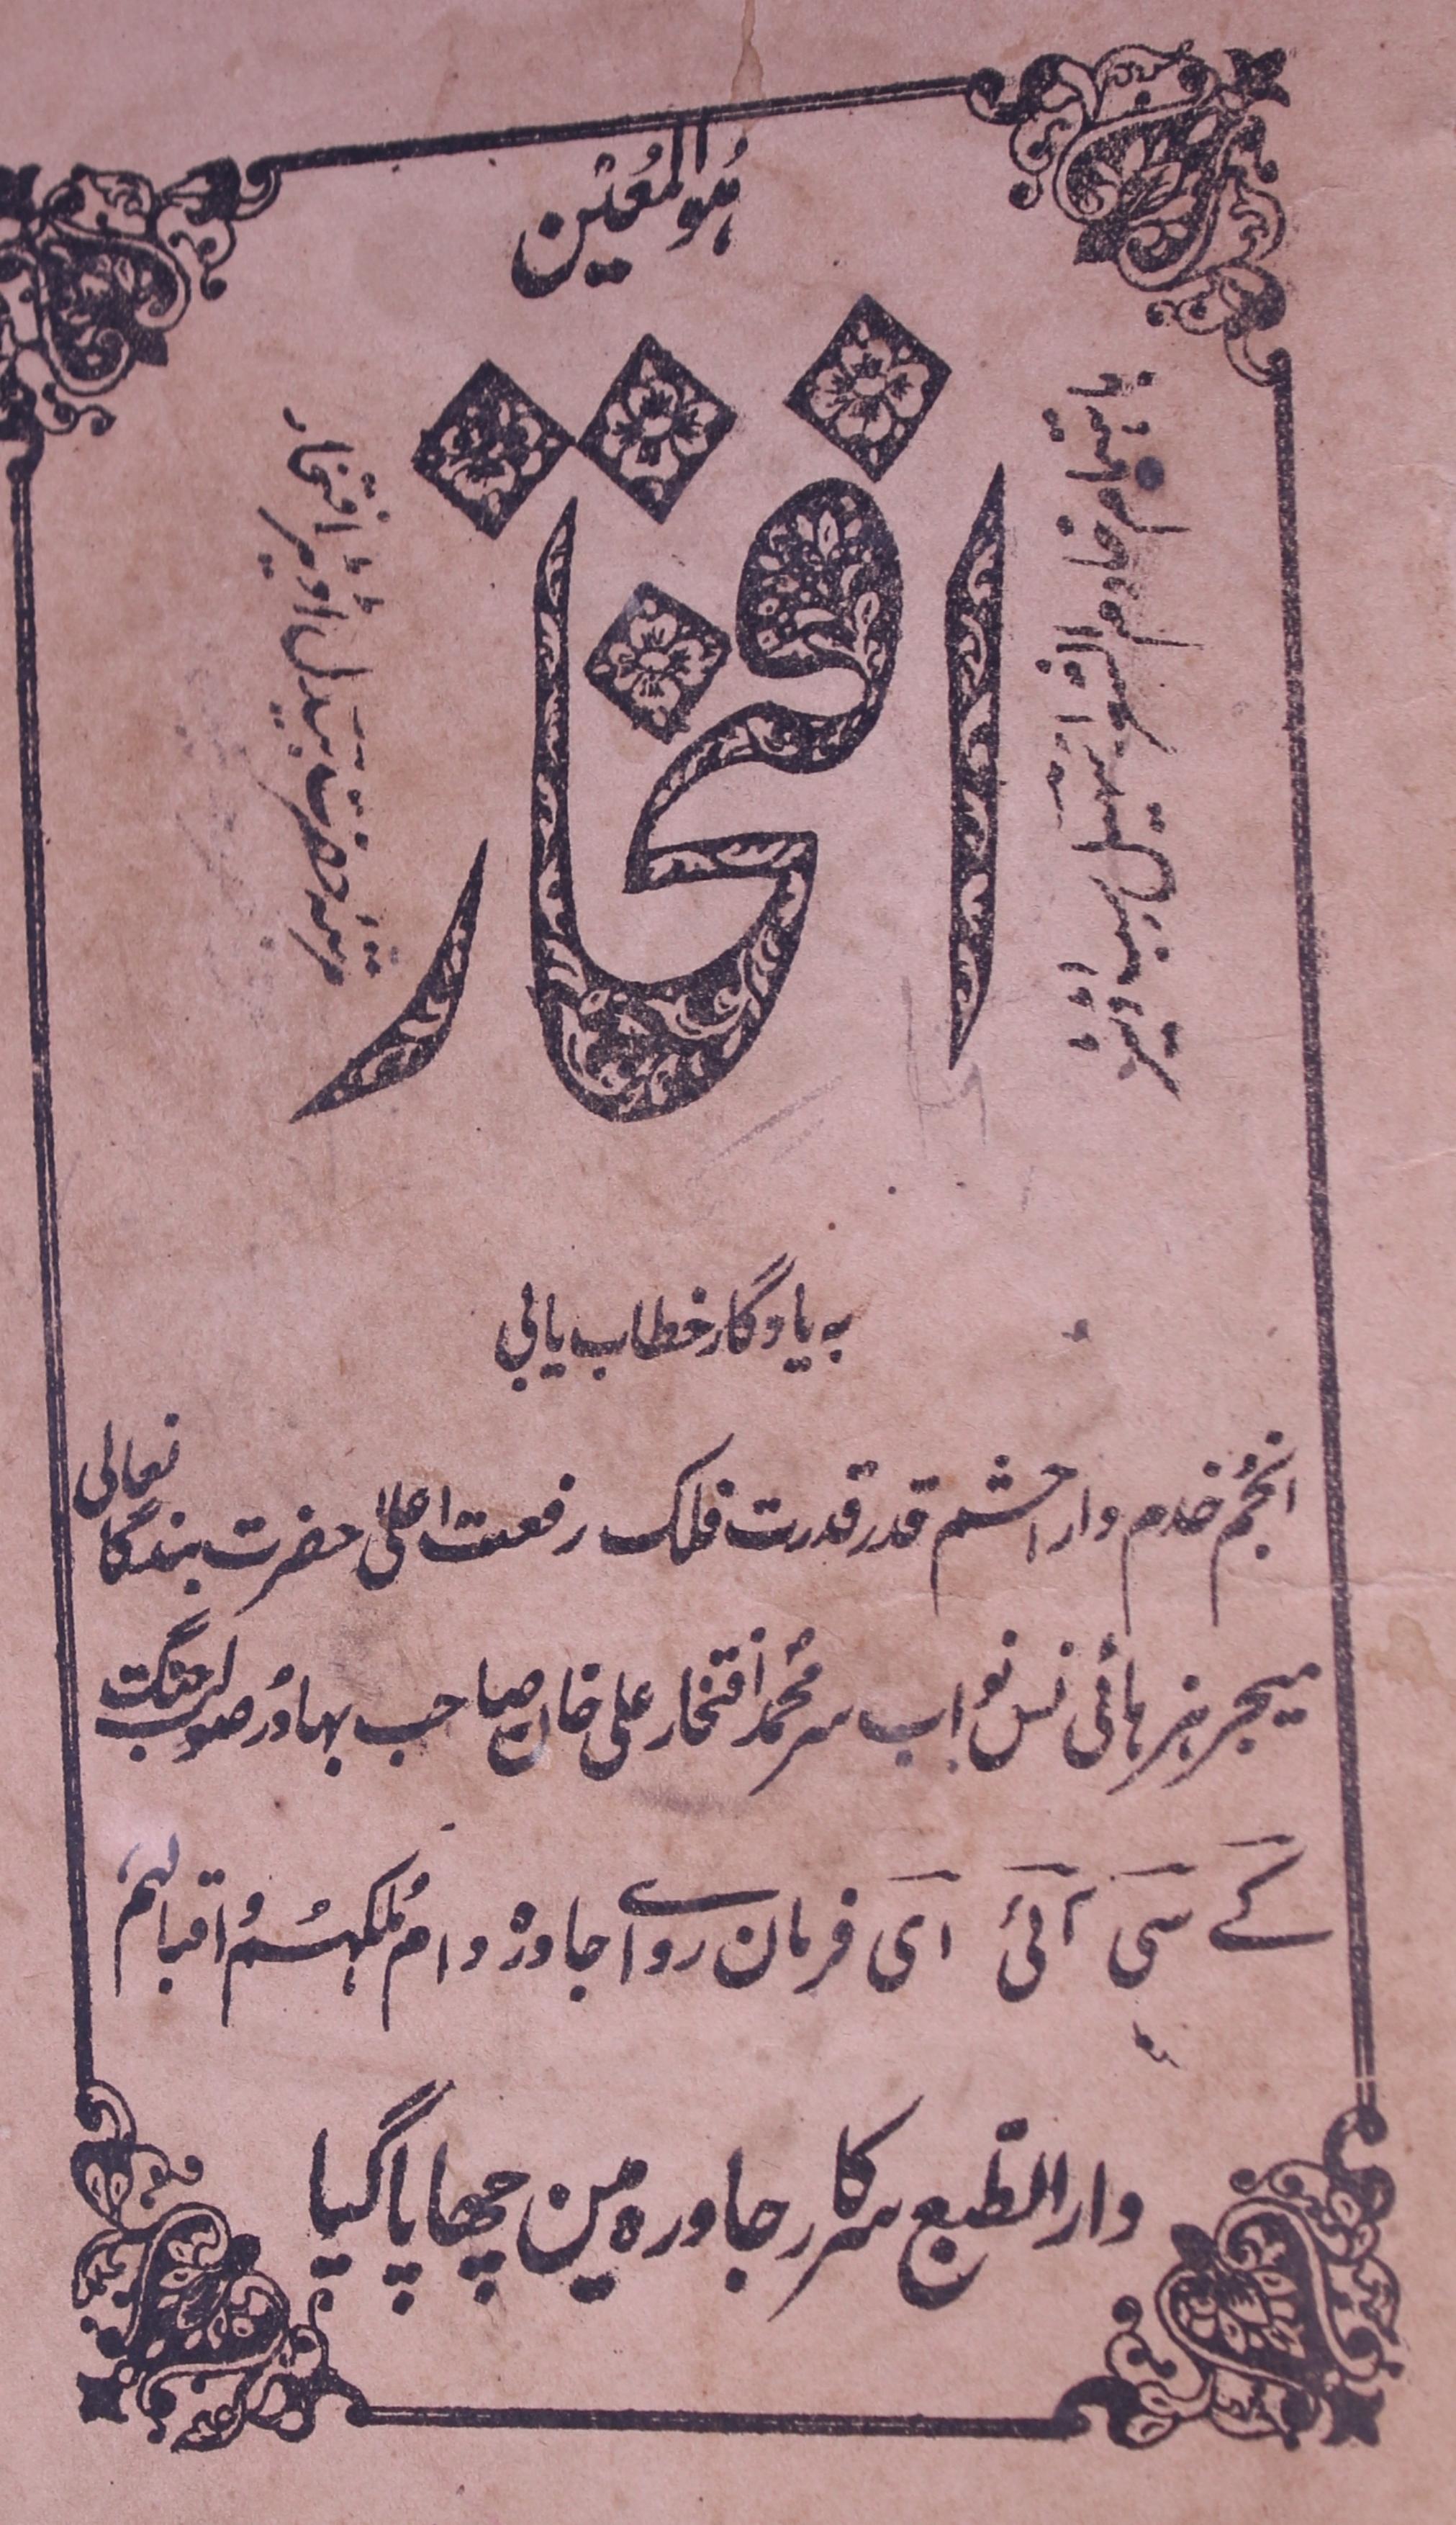 ہُوالمُعین
افتخار
باہتمام خادم الشعرا سہیل سب اڈیٹر
حضرت بیدل اڈیٹر افتخار
بہ یادگار خطاب یابی
انجم خدم دارا حشم قدر قدرت فلک رفعت اعلیٰ حضرت بندگانعالی
میجر ہز ہائی نس نواب سر محمد افتخار علی خان صاحب بہادُر صولت جنگ
کے سی آئی ای فرمان روائے جاورہ دام مُلکہُم و اقبالہم
دارالطبع سرکار جاورہ مین چھاپا گیا